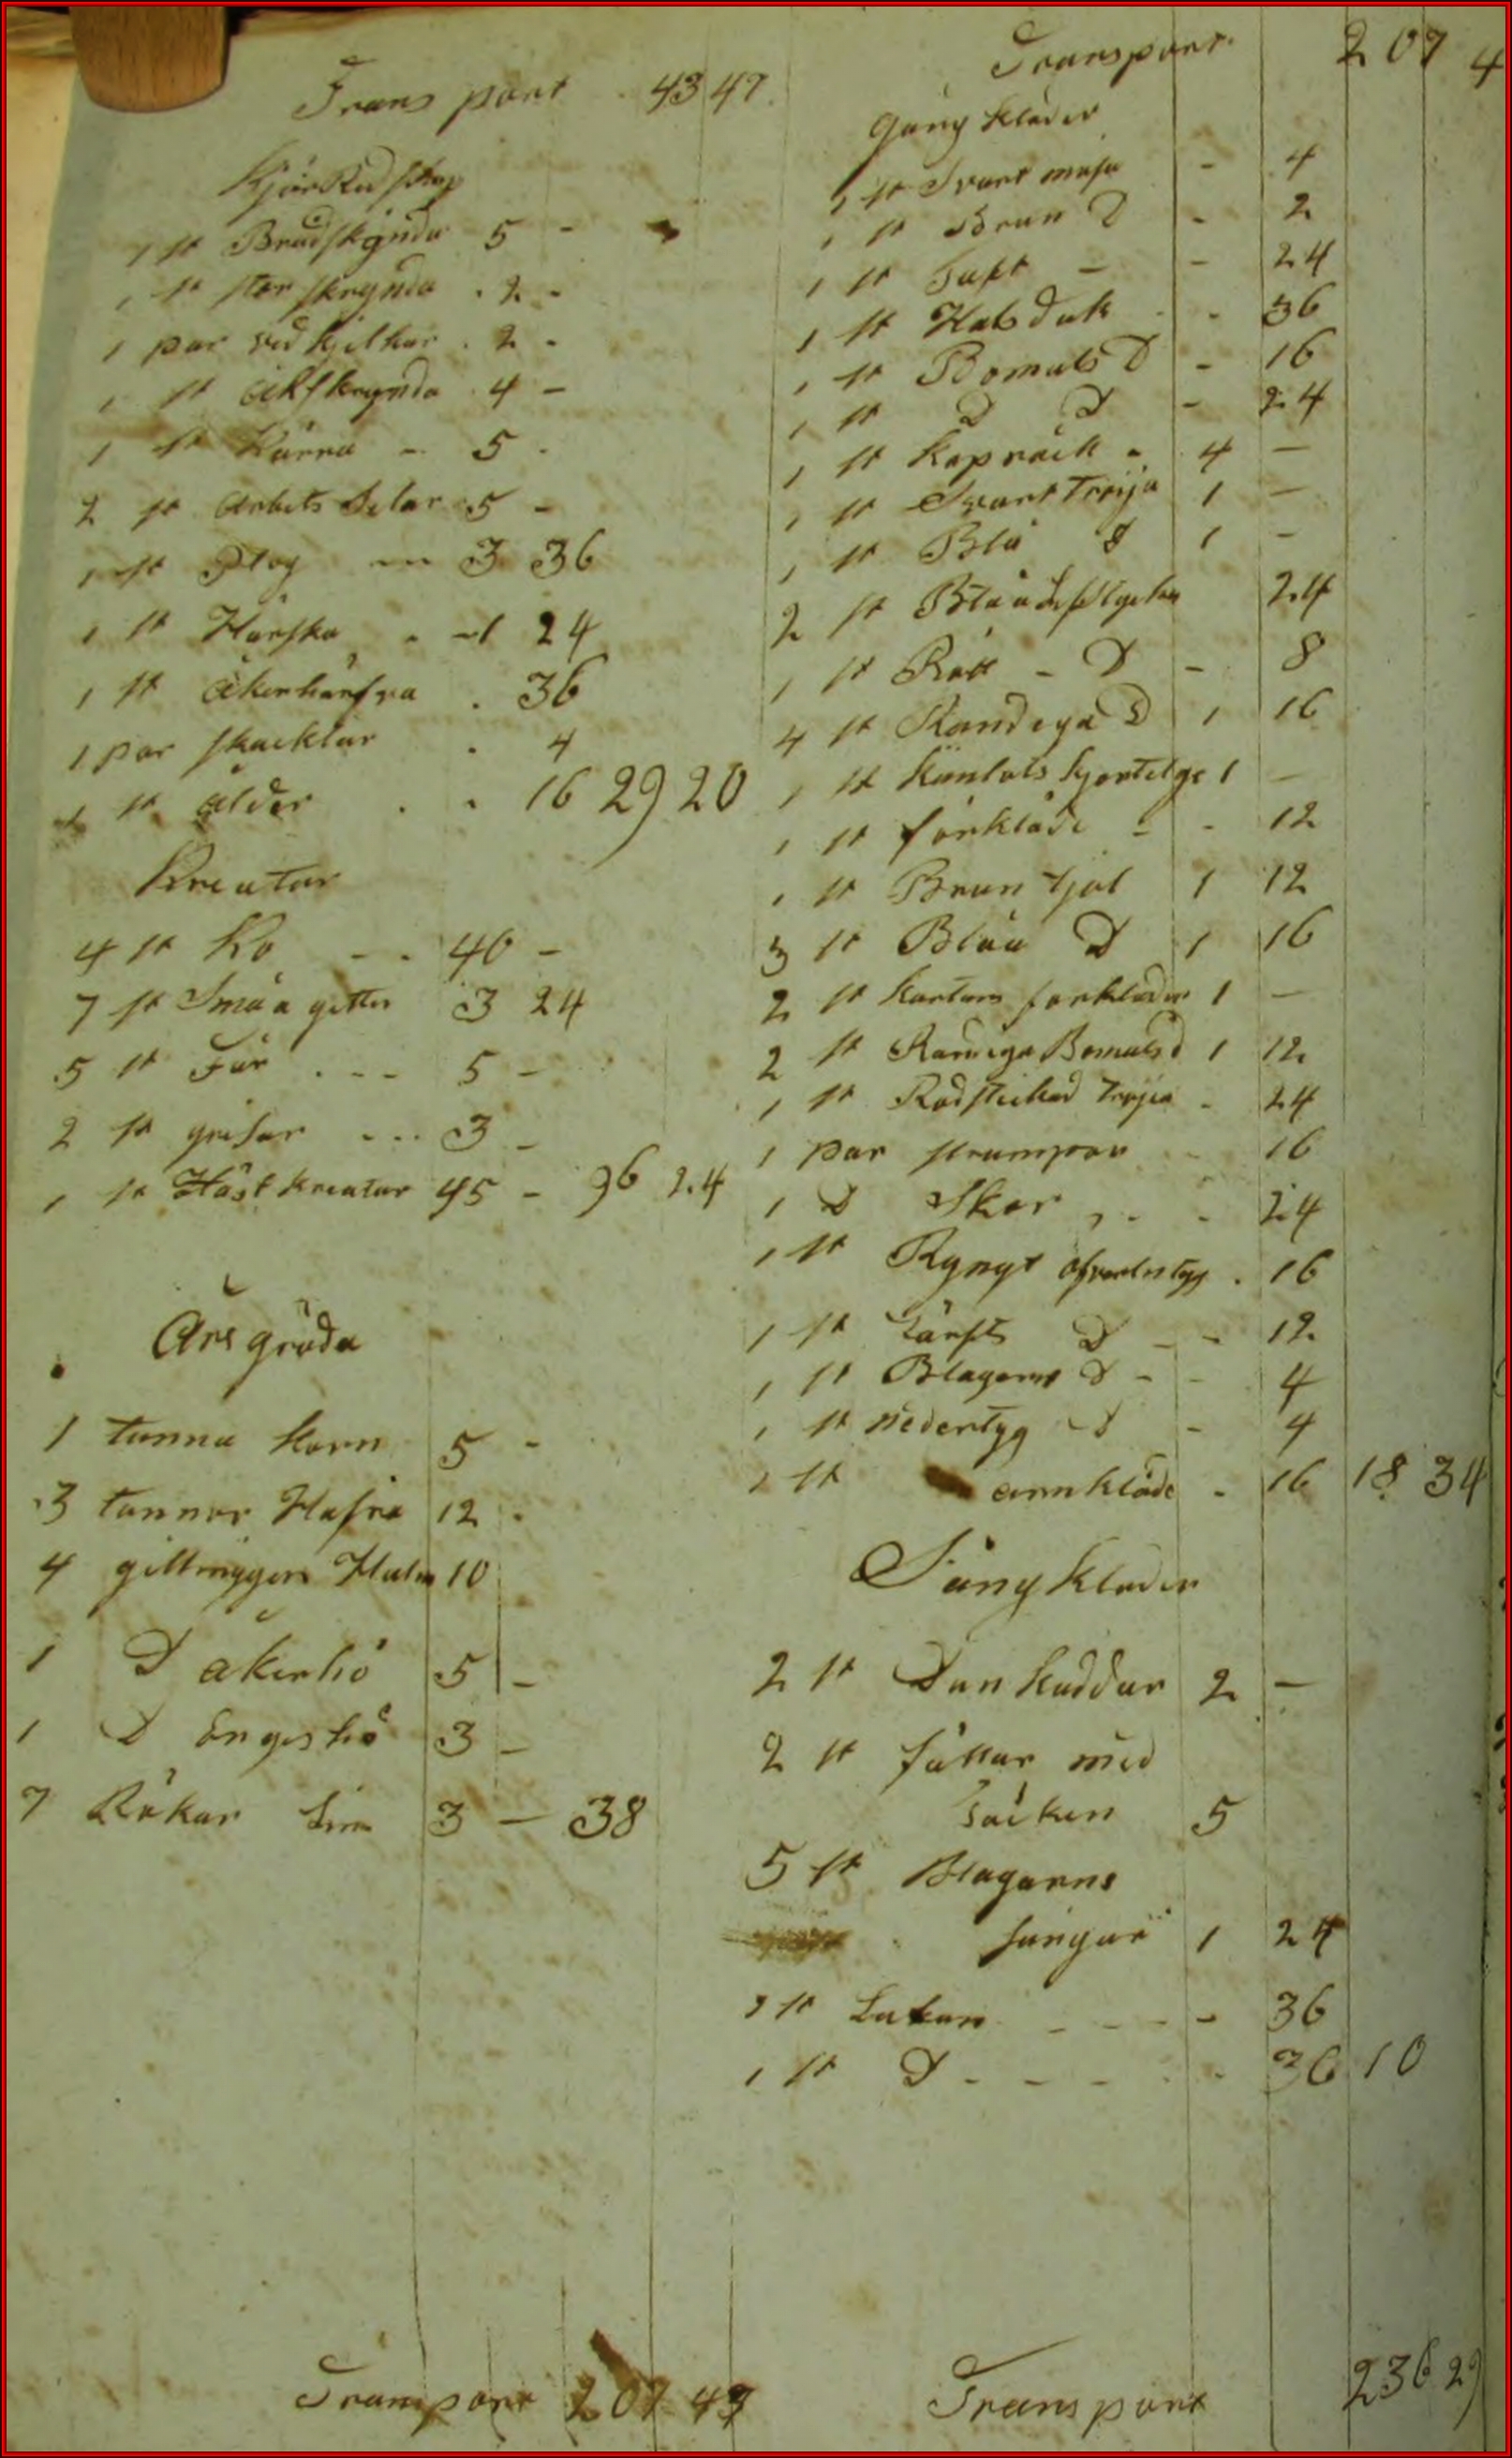 Transport 43 47
KjörRedskap
1 st Brudskynda 5 -
1 st stor skrynda . 2 -
1 par ved kjelkar . 2 -
1 st åkskrynda 4 -
1 st Kärra - 5 -
2 st Arbets Selar 5 -
1 st Plog 3 36
1 st Harfka - 1 24
1 st åkerharfva . 36
1 par skacklar . 4
1 st ålder . . 16 29 20
Kreatur
4 st Ko - . 40 -
7 st Småa getter 3 24
5 st Får . - - 5 -
2 st grisar - . . 3 -
1 st Häst kreatur 45 - 96 24
Års gröda
1 tunna korn 5 -
3 tunnor Hafra 12 .
4 Halm 10
1 D åkerhö 5 -
1 D Engeshö 3 -
7 Rökar 3 - 38
Transport 207 43
Transport 207 4
Gång kläder
1 st Svart - 4
1 st Brun D - 2
1 st Taft - - 24
1 st Halsduk - . 36
1 st Bomuls D - 16
1 st D D - 24
1 st Kapråck - 4 -
1 st Svart Tröija 1 -
1 st Blå D 1 -
2 st Blåa 24
1 st Rött - D - 8
4 st Randiga D 1 16
1 st 1 -
1 st förkläde - - 12
1 st Brun tjol 1 12
3 st Blåa D 1 16
2 st Kartuns forkläder 1 -
2 st Randiga Bomuls d 1 12
1 st tröjia - 24
1 par strumpor - 16
1 D Skor , . - 24
1 st . 16
1 st Lärfts D - - 12
1 st Blagarns D - - 4
1 st nedertyg D - 4
1 st armkläde - 16 18 34
Säng kläder
2 st Dun kuddar 2 -
2 st fällar med
Täcken 5
5 st Blagarns
sängar 1 24
1 st Lakan - - - - 36
1 st D - - - . - 36 10
Transport 236 29